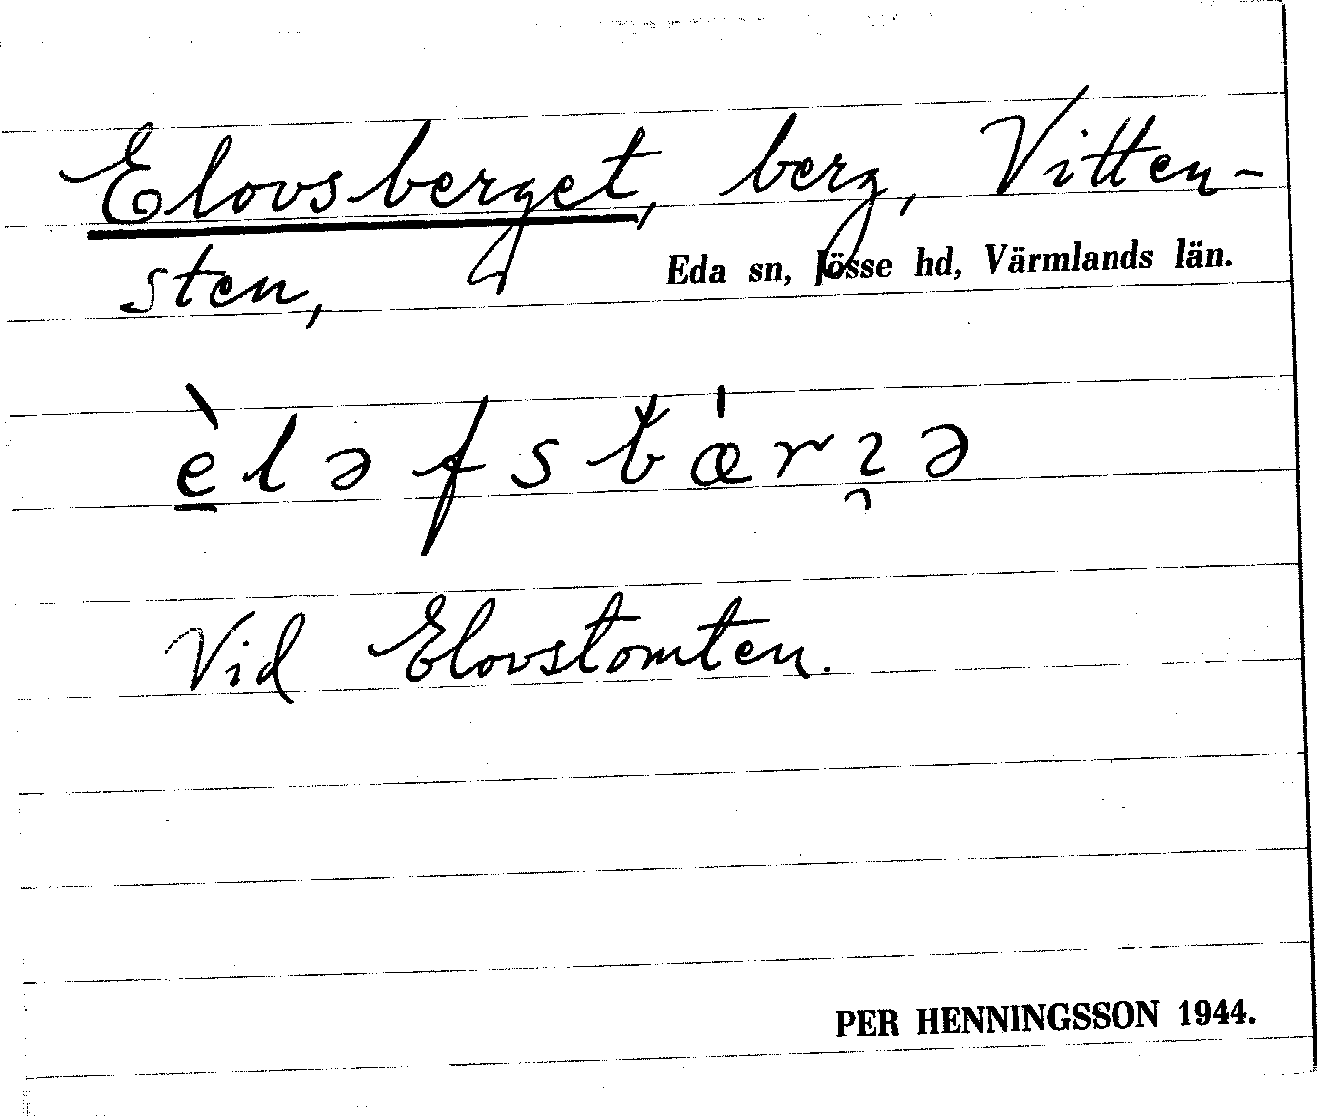 Elovsberget, berg, Vitten-
sten,
Eda sn, Jösse hd, Värmlands län.
Vid Elovstomten.
PER HENNINGSSON 1944.